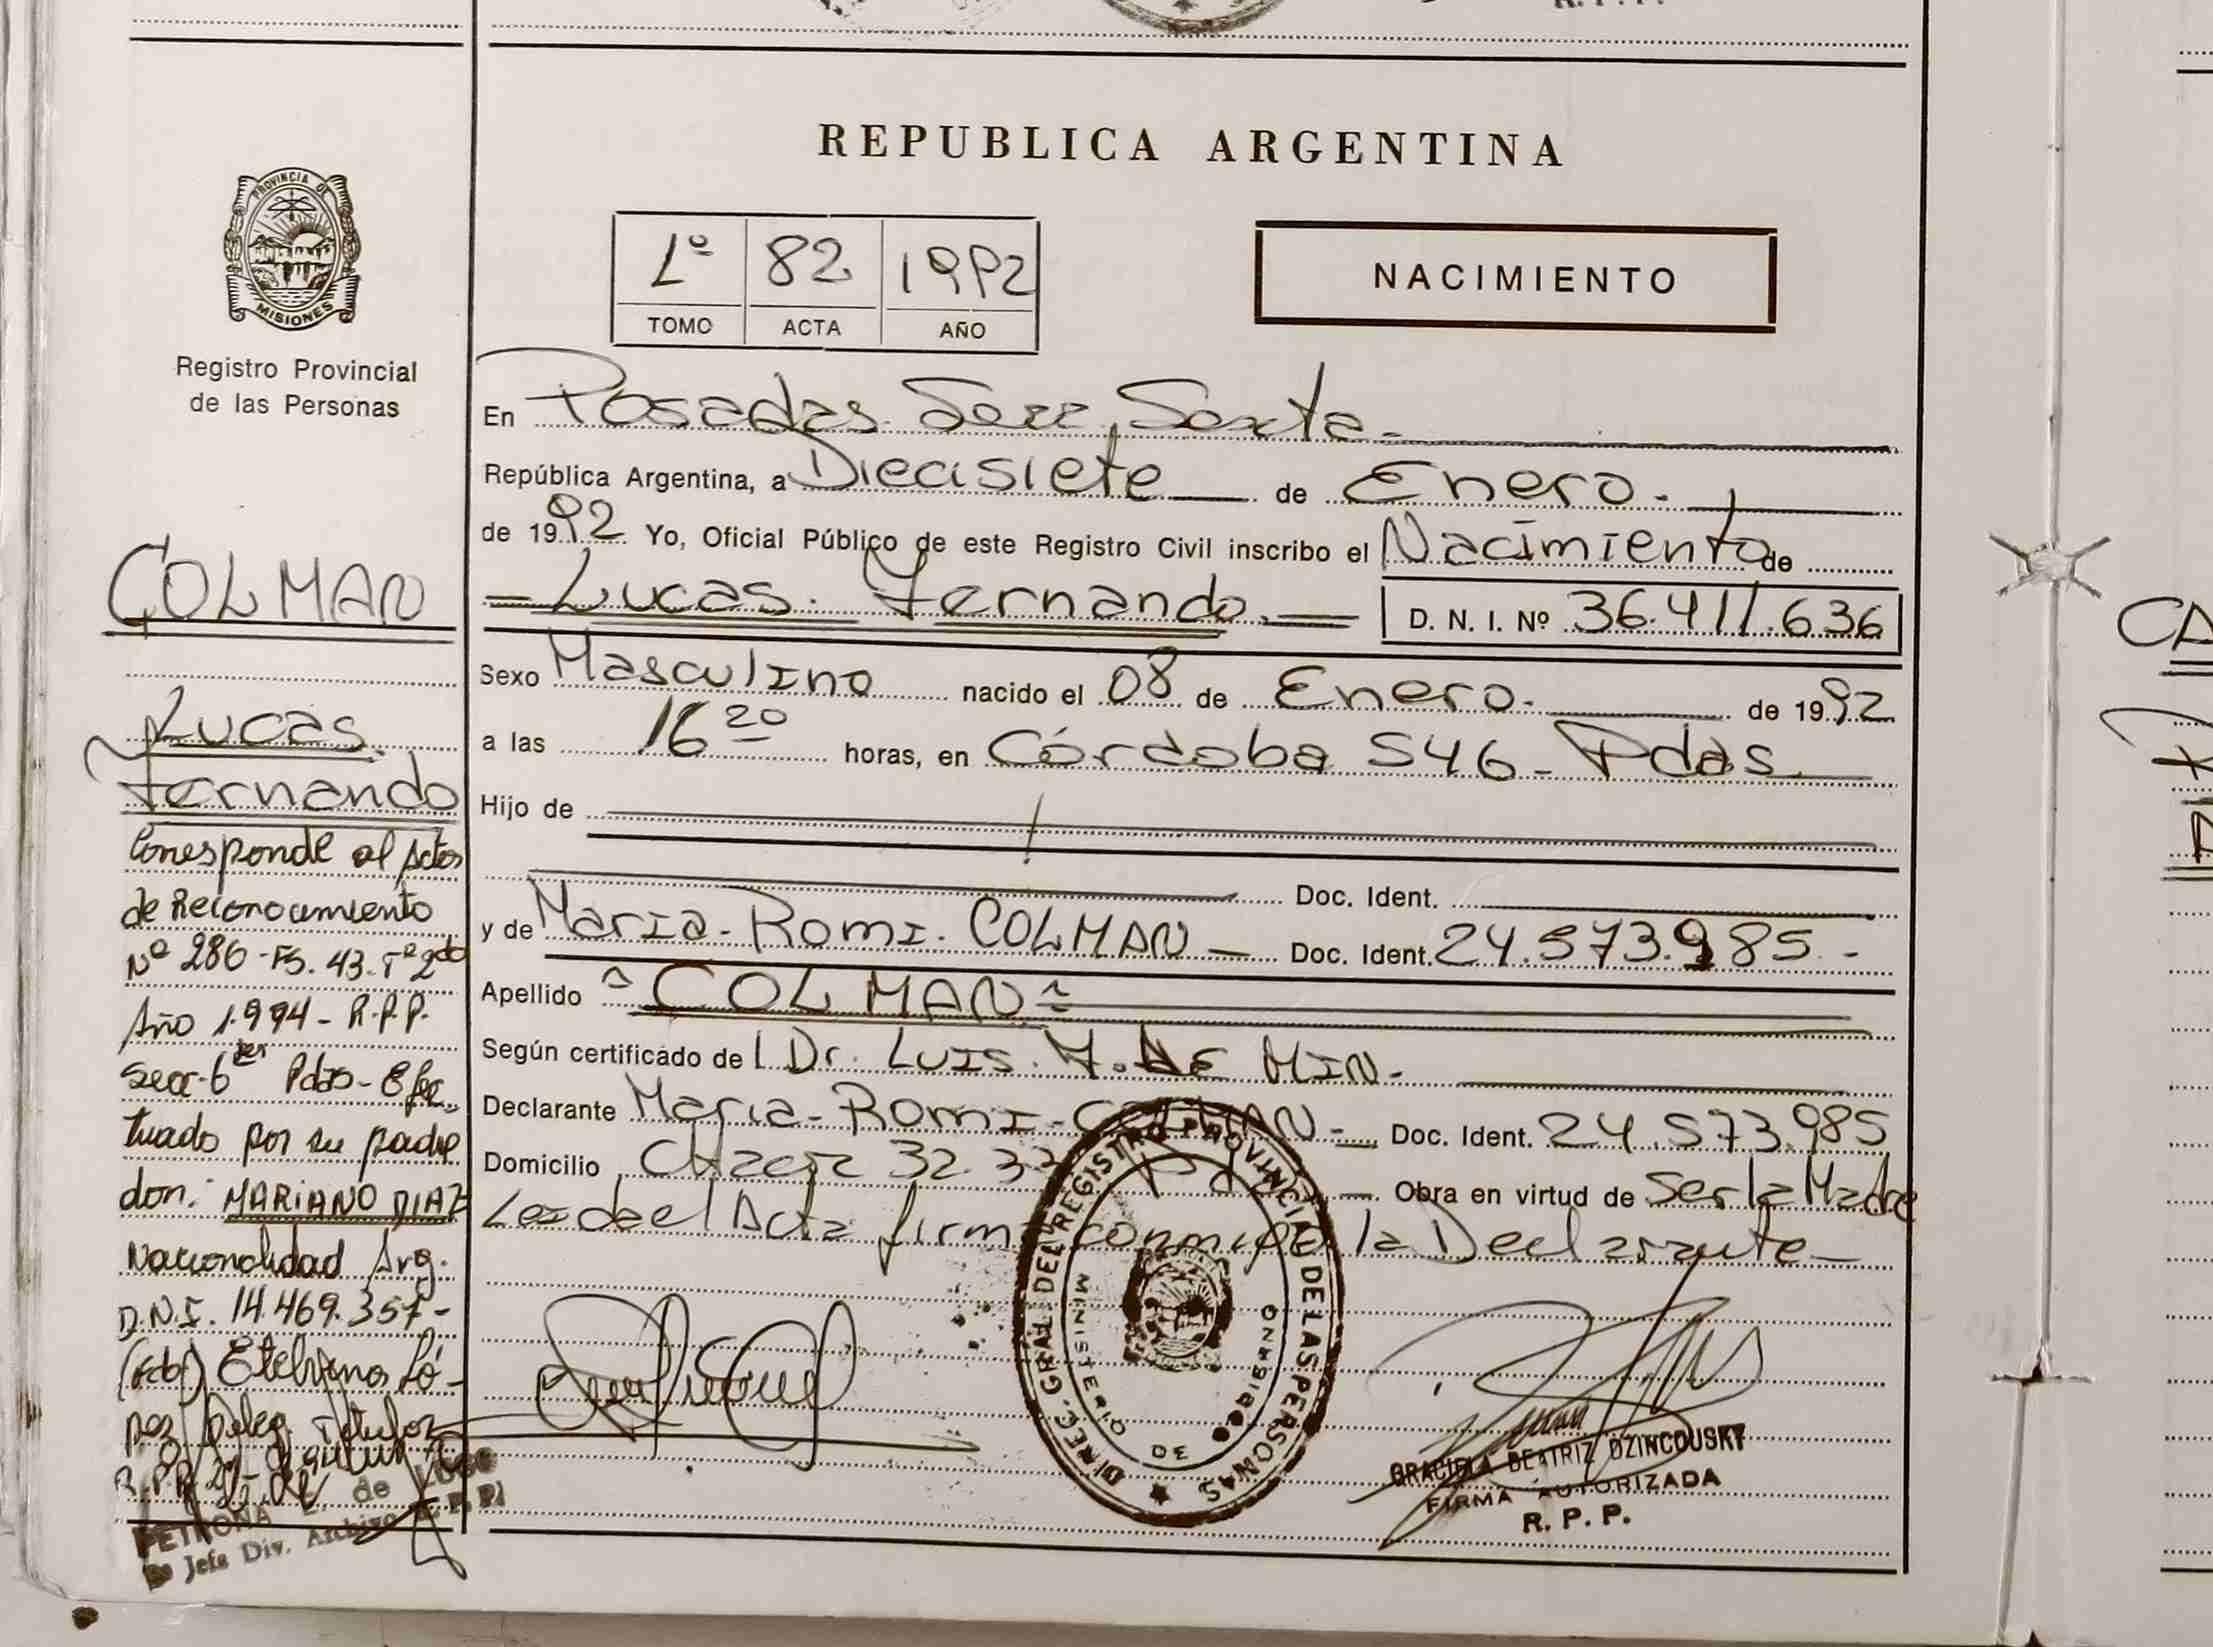 REPUBLICA ARGENTINA
PROVINCIA DE
MISIONES
Registro Provincial
de las Personas
Lº 82 1992
TOMO ACTA AÑO
NACIMIENTO
COLMAN
Lucas
Fernando
Corresponde al Acta
de Reconocimiento
Nº 286-Fs. 43. Tº 2do
Año 1.994- R.P.P.
Secc. 6ta Pdas- Efec
tuado por su padre
don: MARIANO DIAZ
Nacionalidad Arg.
D.N.I. 14.469.357-
(Fdo) Etelvina Ló-
pez Deleg. Titular
R.P.P.
PETRONA de LUGO
Jefa Div. Archivo
En Posadas Secc. Sexta.
República Argentina, a Diecisiete de Enero.
de 1992 Yo, Oficial Público de este Registro Civil inscribo el Nacimiento de
Lucas. Fernando. D. N. I. Nº 36.411.636
Sexo Masculino nacido el 08 de Enero. de 1992
a las 16 20 horas, en Córdoba 546- Pdas
Hijo de
Doc. Ident.
y de Maria- Romi. COLMAN Doc. Ident. 24.573.985.-
Apellido "COLMAN"
Según certificado de l Dr. LUIS. M. DE MIN.
Declarante Maria- Romi- COLMAN- Doc. Ident. 24.573.985
Domicilio Chacra 32.33 Obra en virtud de Ser la Madre
Leída el Acta firma conmigo la Declarante
DIREC. GRAL. DEL REGISTRO PROVINCIAL DE LAS PERSONAS
MINISTERIO DE GOBIERNO
GRACIELA BEATRIZ DZINCOUSKY
FIRMA AUTORIZADA
R. P. P.
CA